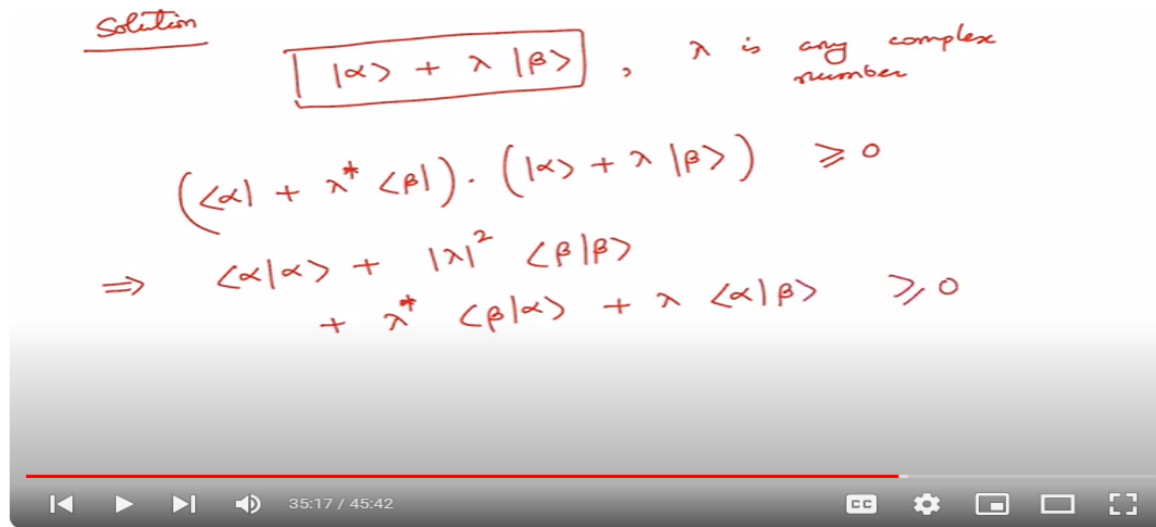 Solution
|α> + λ |β> , λ is any complex
number
(<α| + λ* <β|) . (|α> + λ |β>) ⩾ 0
⇒ <α|α> + |λ|² <β|β>
+ λ* <β|α> + λ <α|β> ⩾ 0
35:17 / 45:42
CC